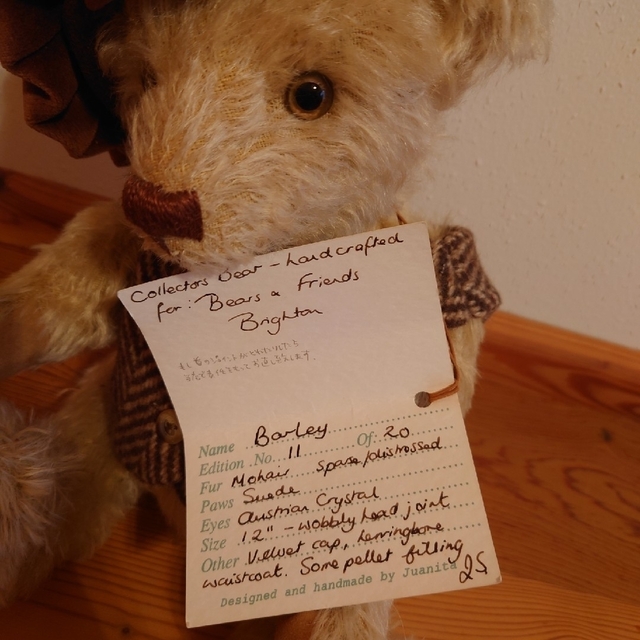 Collectors Bear - handcrafted
for: Bears & Friends
Brighton
Name Barley
Edition No. 11 Of: 20
Fur Mohair sparse/distressed
Paws Suede
Eyes Austrian Crystal
Size 12" - wobbly head joint
Other Velvet cap, herringbone
waistcoat. Some pellet filling
Designed and handmade by Juanita
25